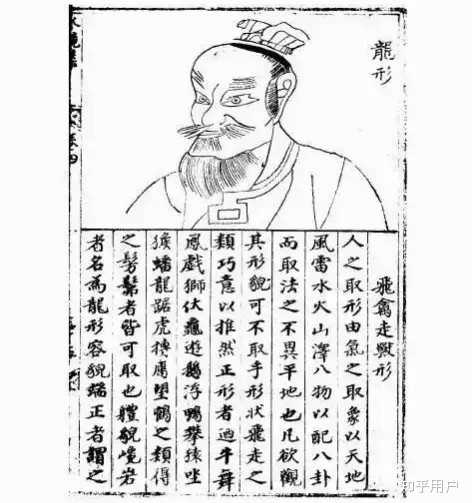 龍形
飛禽走獸形
人之取形由氣之取象以天地
風雷水火山澤八物以配八卦
而取法之不異平地也凡欲觀
其形貌可不取乎形狀飛走之
類巧意以推然正形者 牛舞
鳳戲獅伏龜遊鵝浮鴨攀猿坐
猴蟠龍踞虎摶鷹望鶴之類得
之髣髴者皆可取也體貌巉岩
者名為龍形容貌端正者謂之
知乎用户